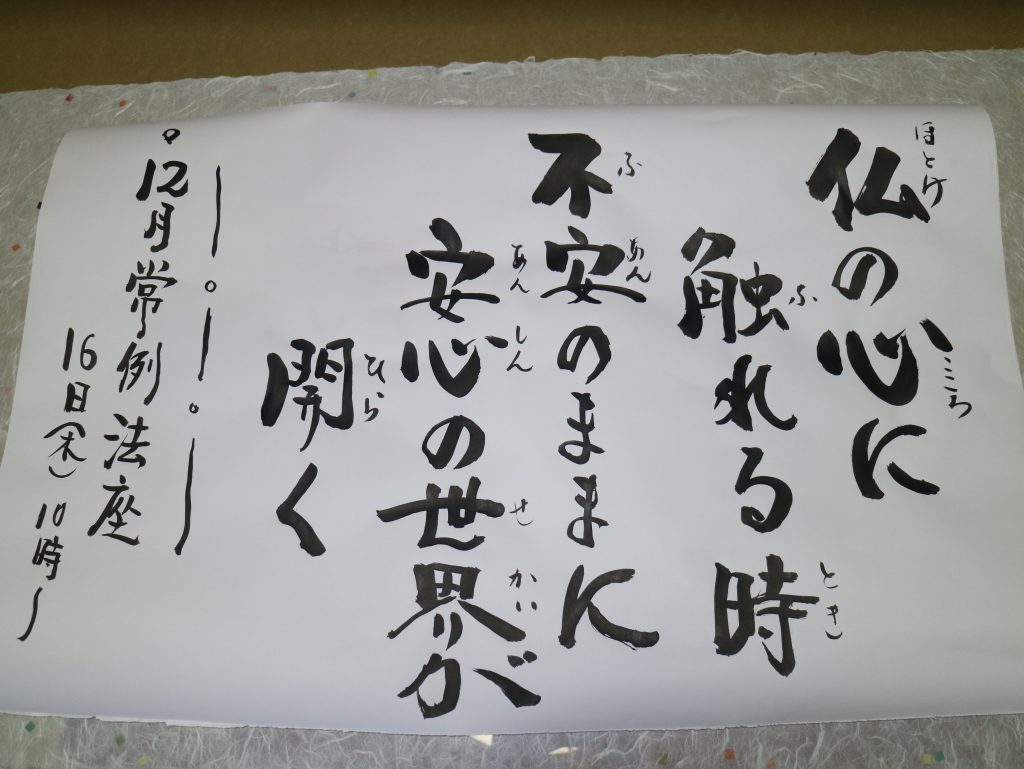 仏の心に
ほとけ
こころ
触れる時
ふ
とき
不安のままに
ふ あん
安心の世界が
あん しん
せ かい
開く
ひら
12月常例法座
16日(木) 10時〜